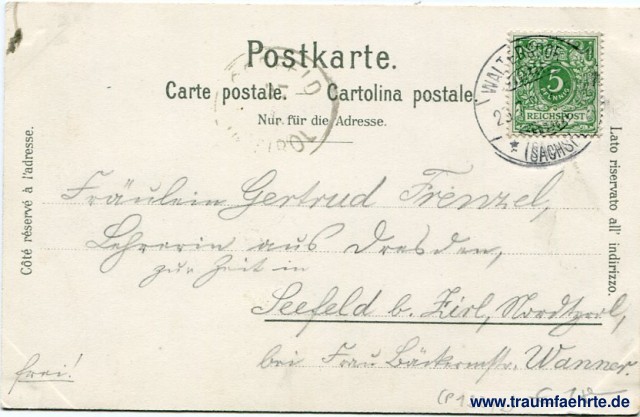 Postkarte.
Carte postale. Cartolina postale.
Nur für die Adresse.
Côté réservé à l'adresse.
Lato riservato all' indirizzo.
5
PFENNIG
REICHSPOST
(SACHS)
Fräulein Gertrud Frenzel,
Lehrerin aus Dresden,
zur Zeit in
Seefeld b. Zirl, Nordtyrol,
bei Frau Bäckermstr. Wanner.
frei!
www.traumfaehrte.de